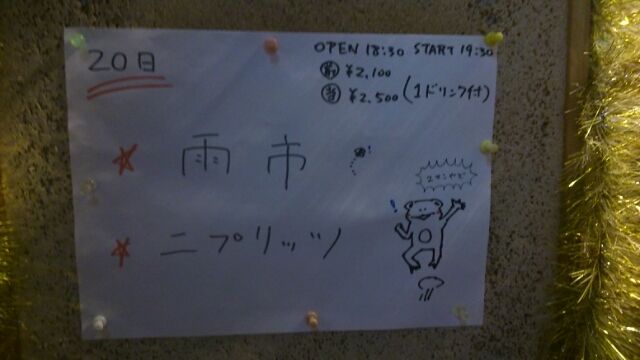 20日
OPEN 18:30 START 19:30
前 ¥2,100
当 ¥2,500 (1ドリンク付)
★ 雨市
★ ニプリッツ